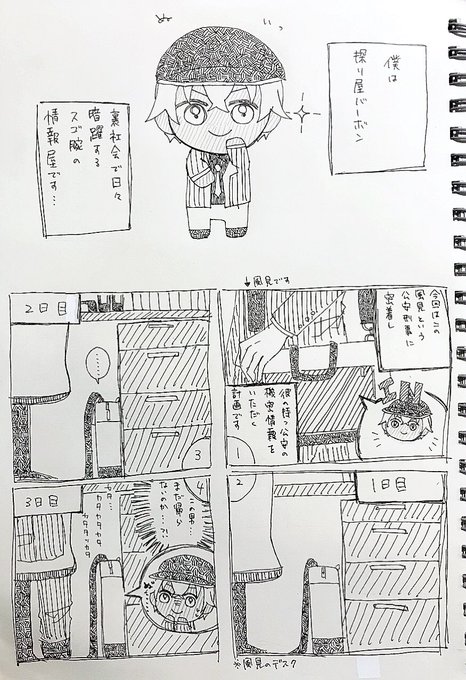 ぬ
いっ
僕は
探り屋バーボン
裏社会で日々
暗躍する
スゴ腕の
情報屋です…
↓風見です
今回はこの
風見という
公安刑事に
密着し
IN
彼の持つ公安の
機密情報を
いただく
計画です
1
1日目
2
※風見のデスク
2日目
……
3
3日目
カタカタカタ
カタカタッカタ
4
この男…
まだ帰ら
ないのか…?!